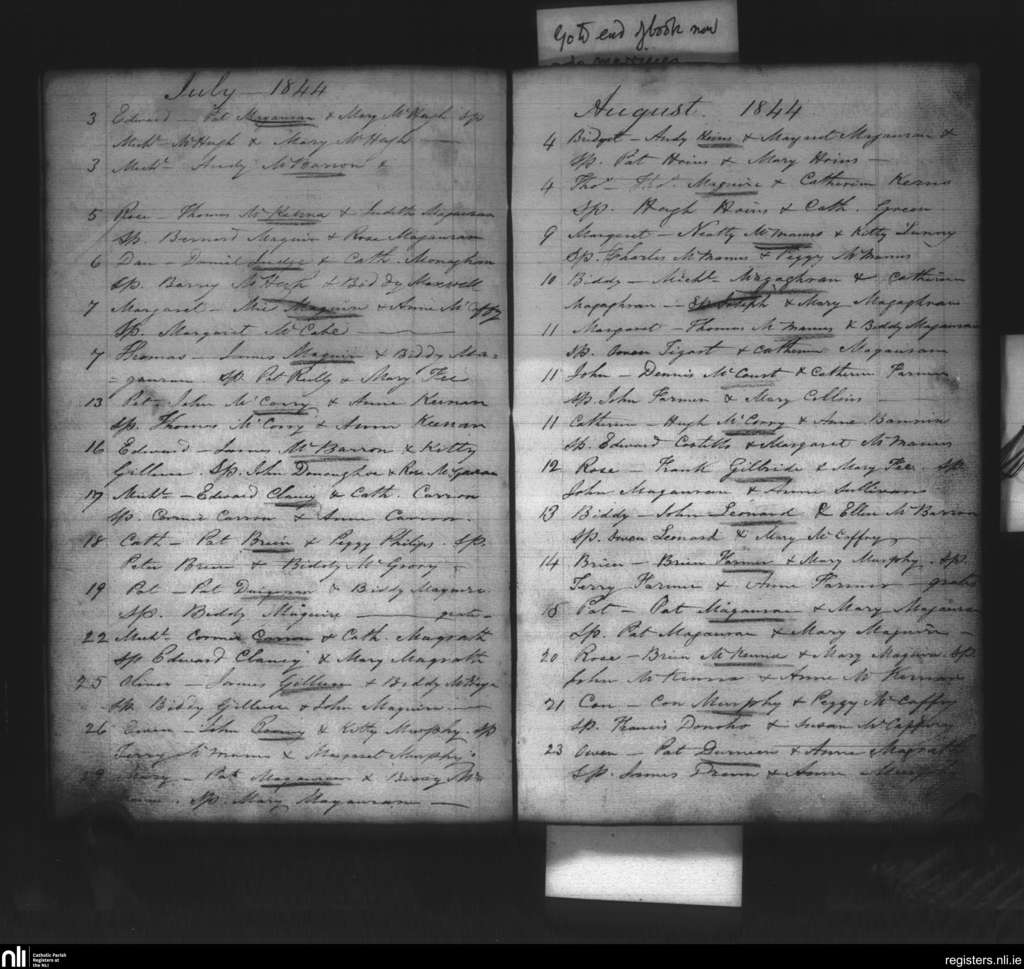 Go to end of book now
July - 1844
3 Edward - Pat Magauran & Mary McHugh Sp
Michl McHugh & Mary McHugh
3 Michl - Andy McBarron &
5 Rose - Thomas McKenna & Judith Magauran
Sp. Bernard Maguire & Rose Magauran
6 Dan - Daniel & Cath. Monaghan
Sp. Barny McHugh & Biddy Maxwell
7 Margaret - Maguire & Anne McCaffry
Sp. Margaret McCabe
7 Thomas - James Maguire & Biddy Ma-
-gauran. Sp. Pat Reilly & Mary Fee
13 Pat - John McCorry & Anne Kernan
Sp. Thomas McCorry & Anne Keenan
16 Edward - James McBarron & Kitty
Gilleece Sp. John Donaghoe & Rose McGauran
17 Michl - Edward Clancy & Cath. Carron
Sp. Connie Carron & Anne Carron.
18 Cath - Pat Brein & Peggy Philips. Sp.
Peter Brein & Biddy McGrory
19 Pat - Pat & Biddy Maguire
Sp. Biddy Maguire - gratis
22 Michl Connie Carron & Cath. Magrath
Sp Edward Clancy & Mary Magrath
25 Oliver - James Gilleece & Biddy
Sp. Biddy Gilleece & John Maguire
26 Owen - John & Kitty Murphy. Sp
Terry McManus & Margaret Murphy
29 Mary - Pat Magauran & Biddy Mc
Sp. Mary Magauran
August. 1844
4 Bridget - Andy Hoins & Margaret Magauran &
Sp. Pat Hoins & Mary Hoins
4 Thos - Thos. Maguire & Catherine Kerns
Sp. Hugh Hoins & Cath. Green
9 Margaret - Neatty McManus & Kitty Lunny
Sp. Charles McManus & Peggy McManus
10 Biddy - Michl. Magaghran & Catherine
Magaghran - Sp. Joseph & Mary Magaghran
11 Margaret - Thomas McManus & Biddy Magauran
Sp. Owen & Catherine Magauran
11 John - Dennis McCourt & Catherine Farmer
Sp John Farmer & Mary Collins
11 Catherine - Hugh McCorry & Anne
Sp. Edward & Margaret McManus
12 Rose - Frank Gilbride & Mary Fee. Sp.
John Magauran & Anne Sullivan
13 Biddy - John Leonard & Ellen McBarron
Sp. Owen Leonard & Mary McCaffry
14 Brien - Brien Farmer & Mary Murphy. Sp.
Terry Farmer & Anne Farmer - gratis
18 Pat - Pat Magauran & Mary Magauran
Sp. Pat Magauran & Mary Maguire
20 Rose - Brien McKenna & Mary Maguire Sp.
John McKenna & Anne McKernan
21 Con - Con Murphy & Peggy McCaffry
Sp. Francis Donoho & Susan McCaffrey
23 Owen - Pat & Anne Magrath
Sp. James & Anne Murphy
nli Catholic Parish
Registers at
the NLI
registers.nli.ie